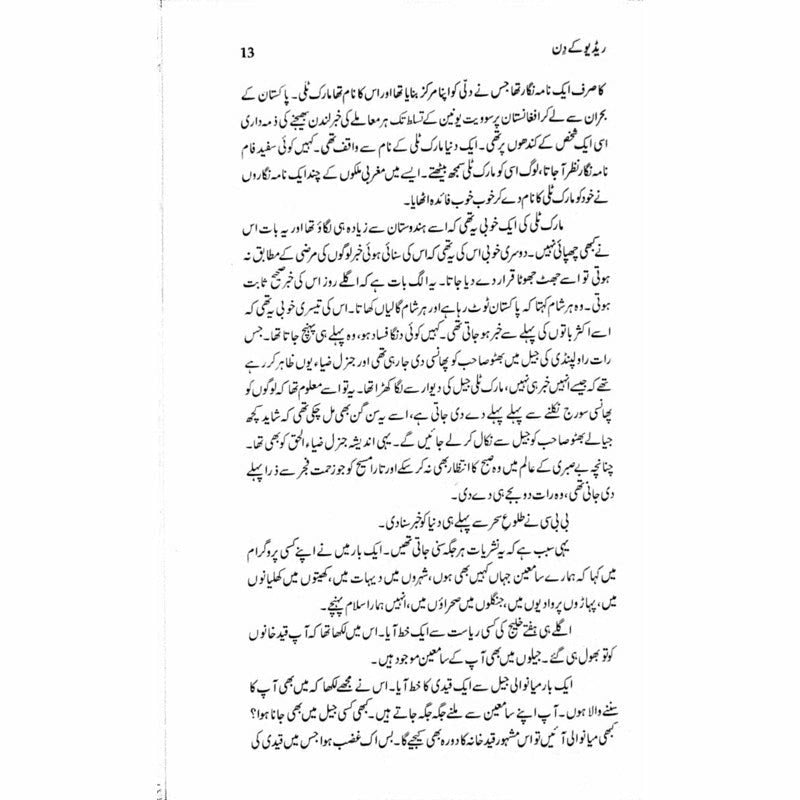 ریڈیو کے دِن
13
کا صرف ایک نامہ نگار تھا جس نے دلّی کو اپنا مرکز بنایا تھا اور اس کا نام تھا مارک ٹلی۔ پاکستان کے
بحران سے لے کر افغانستان پر سوویت یونین کے تسلط تک ہر معاملے کی خبر لندن بھیجنے کی ذمہ داری
اسی ایک شخص کے کندھوں پر تھی۔ ایک دنیا مارک ٹلی کے نام سے واقف تھی۔ کہیں کوئی سفید فام
نامہ نگار نظر آجاتا، لوگ اسی کو مارک ٹلی سمجھ بیٹھتے۔ ایسے میں مغربی ملکوں کے چند ایک نامہ نگاروں
نے خود کو مارک ٹلی کا نام دے کر خوب خوب فائدہ اٹھایا۔
مارک ٹلی کی ایک خوبی یہ تھی کہ اسے ہندوستان سے زیادہ ہی لگاؤ تھا اور یہ بات اس
نے کبھی چھپائی نہیں۔ دوسری خوبی اس کی یہ تھی کہ اس کی سنائی ہوئی خبر لوگوں کی مرضی کے مطابق نہ
ہوتی تو اسے جھٹ جھوٹا قرار دے دیا جاتا۔ یہ الگ بات ہے کہ اگلے روز اس کی خبر صحیح ثابت
ہوتی۔ وہ ہر شام کہتا کہ پاکستان ٹوٹ رہا ہے اور ہر شام گالیاں کھاتا۔ اس کی تیسری خوبی یہ تھی کہ
اسے اکثر باتوں کی پہلے سے خبر ہوجاتی تھی۔ کہیں کوئی دنگا فساد ہو، وہ پہلے ہی پہنچ جاتا تھا۔ جس
رات راولپنڈی کی جیل میں بھٹو صاحب کو پھانسی دی جارہی تھی اور جنرل ضیاء یوں ظاہر کررہے
تھے کہ جیسے انہیں خبر ہی نہیں، مارک ٹلی جیل کی دیوار سے لگا کھڑا تھا۔ یہ تو اسے معلوم تھا کہ لوگوں کو
پھانسی سورج نکلنے سے پہلے پہلے دے دی جاتی ہے، اسے یہ سن گن بھی مل چکی تھی کہ شاید کچھ
جیالے بھٹو صاحب کو جیل سے نکال کر لے جائیں گے۔ یہی اندیشہ جنرل ضیاء الحق کو بھی تھا۔
چنانچہ بے صبری کے عالم میں وہ صبح کا انتظار بھی نہ کرسکے اور تارا مسیح کو جو زحمت فجر سے ذرا پہلے
دی جانی تھی، وہ رات دو بجے ہی دے دی۔
بی بی سی نے طلوعِ سحر سے پہلے ہی دنیا کو خبر سنا دی۔
یہی سبب ہے کہ یہ نشریات ہر جگہ سنی جاتی تھیں۔ ایک بار میں نے اپنے کسی پروگرام
میں کہا کہ ہمارے سامعین جہاں کہیں بھی ہوں، شہروں میں دیہات میں، کھیتوں میں کھلیانوں
میں، پہاڑوں پر وادیوں میں، جنگلوں میں صحراؤں میں، انہیں ہمارا سلام پہنچے۔
اگلے ہی ہفتے خلیج کی کسی ریاست سے ایک خط آیا۔ اس میں لکھا تھا کہ آپ قید خانوں
کو تو بھول ہی گئے۔ جیلوں میں بھی آپ کے سامعین موجود ہیں۔
ایک بار میانوالی جیل سے ایک قیدی کا خط آیا۔ اس نے مجھے لکھا کہ میں بھی آپ کا
سننے والا ہوں۔ آپ اپنے سامعین سے ملنے جگہ جگہ جاتے ہیں۔ کبھی کسی جیل میں بھی جانا ہوا؟
کبھی میانوالی آئیں تو اس مشہور قید خانہ کا دورہ بھی کیجیے گا۔ بس اک غضب ہوا جس میں قیدی کی